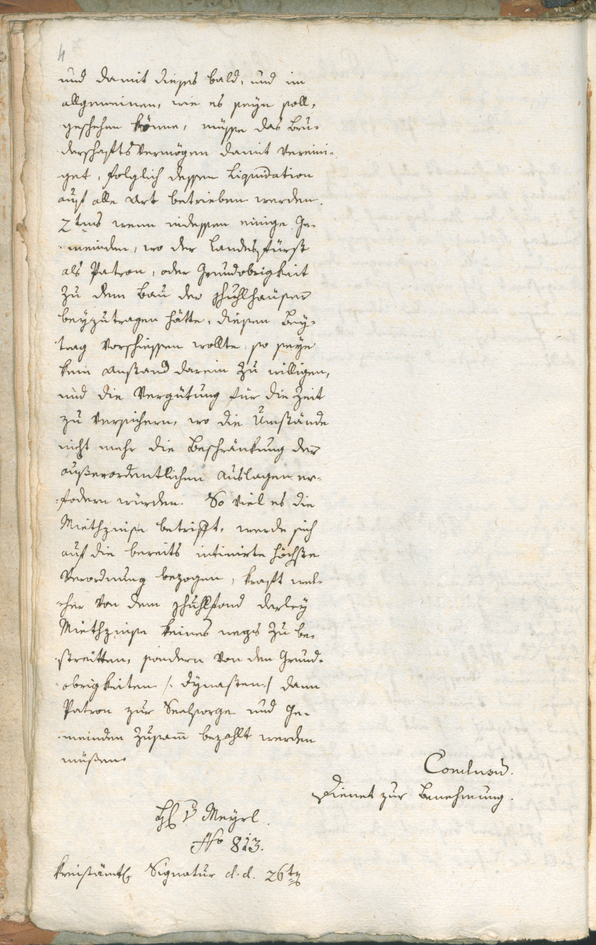 4
und damit dieses bald, und im
allgemeinen, wie es seyn soll,
geschehen könne, müsse das Bru-
derschaftsvermögen damit verein-
get, folglich dessen Liquidation
auf alle Art betrieben werden.
2tens wenn indessen einige Ge-
meinden, wo der Landesfürst
als Patron, oder Grundobrigkeit
zu dem Bau der Schulhäuser
beyzutragen hätte, diesen Bey-
trag vorschiessen wollte, so seye
kein Anstand darein zu willigen,
und die Vergütung für die Zeit
zu versichern, wo die Umstände
nicht mehr die Beschränkung der
außerordentlichen Auslagen er-
fodern würden. So viel es die
Miethzinse betrifft, werde sich
auf die bereits intimirte höchste
Verordnung bezogen, kraft wel-
cher von dem Schulfond derley
Miethzinse keines wegs zu be-
streitten, sondern von den Grund-
obrigkeiten /: Dynasten :/ dann
Patron zur Seelsorge und Ge-
meinden zusam bezahlt werden
müßen.
Conclusum.
Dienet zur Benehmung.
H v Meyrl.
No 813.
Kreisämtl Signatur d. d. 26ten